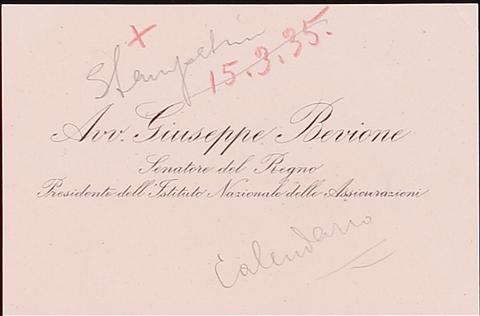 Stampatiu
15.3.35.
Avv. Giuseppe Bevione
Senatore del Regno
Presidente dell'Istituto Nazionale delle Assicurazioni
Calendario